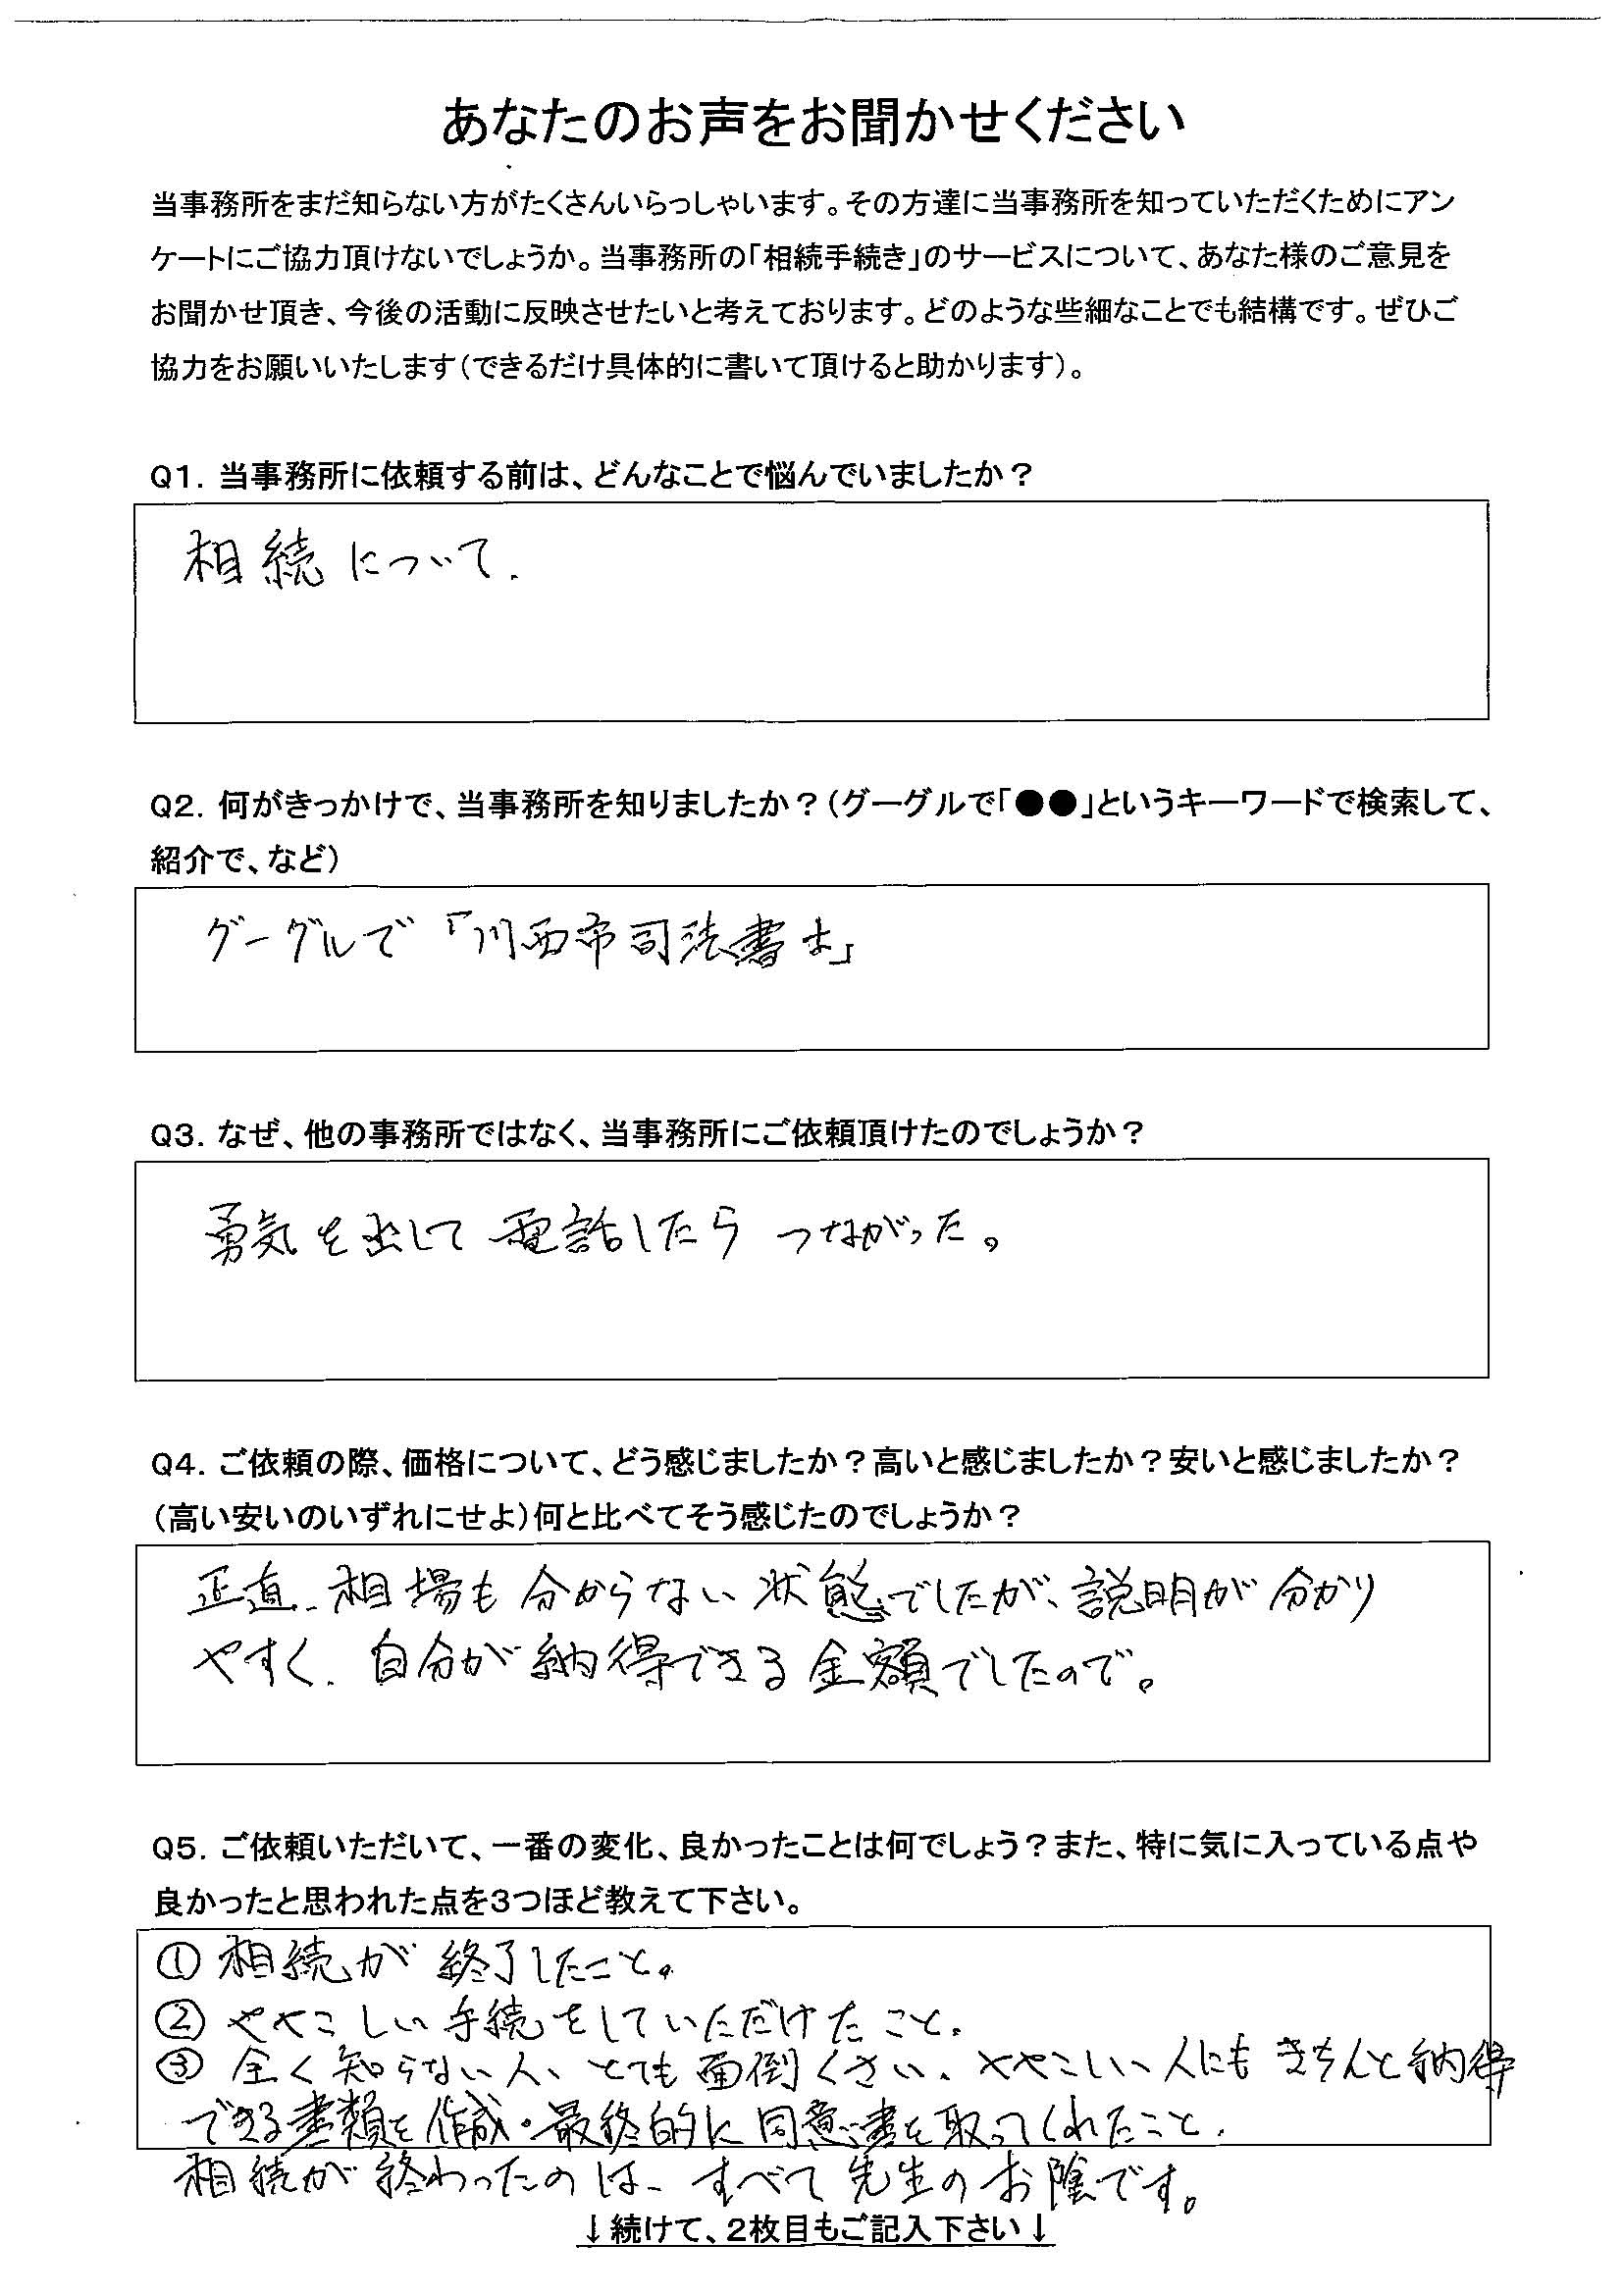 あなたのお声をお聞かせください
当事務所をまだ知らない方がたくさんいらっしゃいます。その方達に当事務所を知っていただくためにアン
ケートにご協力頂けないでしょうか。当事務所の「相続手続き」のサービスについて、あなた様のご意見を
お聞かせ頂き、今後の活動に反映させたいと考えております。どのような些細なことでも結構です。ぜひご
協力をお願いいたします（できるだけ具体的に書いて頂けると助かります）。
Q1．当事務所に依頼する前は、どんなことで悩んでいましたか？
相続について.
Q2．何がきっかけで、当事務所を知りましたか？（グーグルで「●●」というキーワードで検索して、
紹介で、など）
グーグルで「川西市司法書士」
Q3．なぜ、他の事務所ではなく、当事務所にご依頼頂けたのでしょうか？
勇気を出して電話したらつながった。
Q4．ご依頼の際、価格について、どう感じましたか？高いと感じましたか？安いと感じましたか？
（高い安いのいずれにせよ）何と比べてそう感じたのでしょうか？
正直、相場も分からない状態でしたが、説明が分かり
やすく、自分が納得できる金額でしたので。
Q5．ご依頼いただいて、一番の変化、良かったことは何でしょう？また、特に気に入っている点や
良かったと思われた点を3つほど教えて下さい。
①相続が終了したこと。
②ややこしい手続をしていただけたこと.
③全く知らない人、とても面倒くさい、ややこしい人にもきちんと納得
できる書類を作成・最終的に同意書を取ってくれたこと.
相続が終わったのは、すべて先生のお陰です。
↓続けて、2枚目もご記入下さい↓